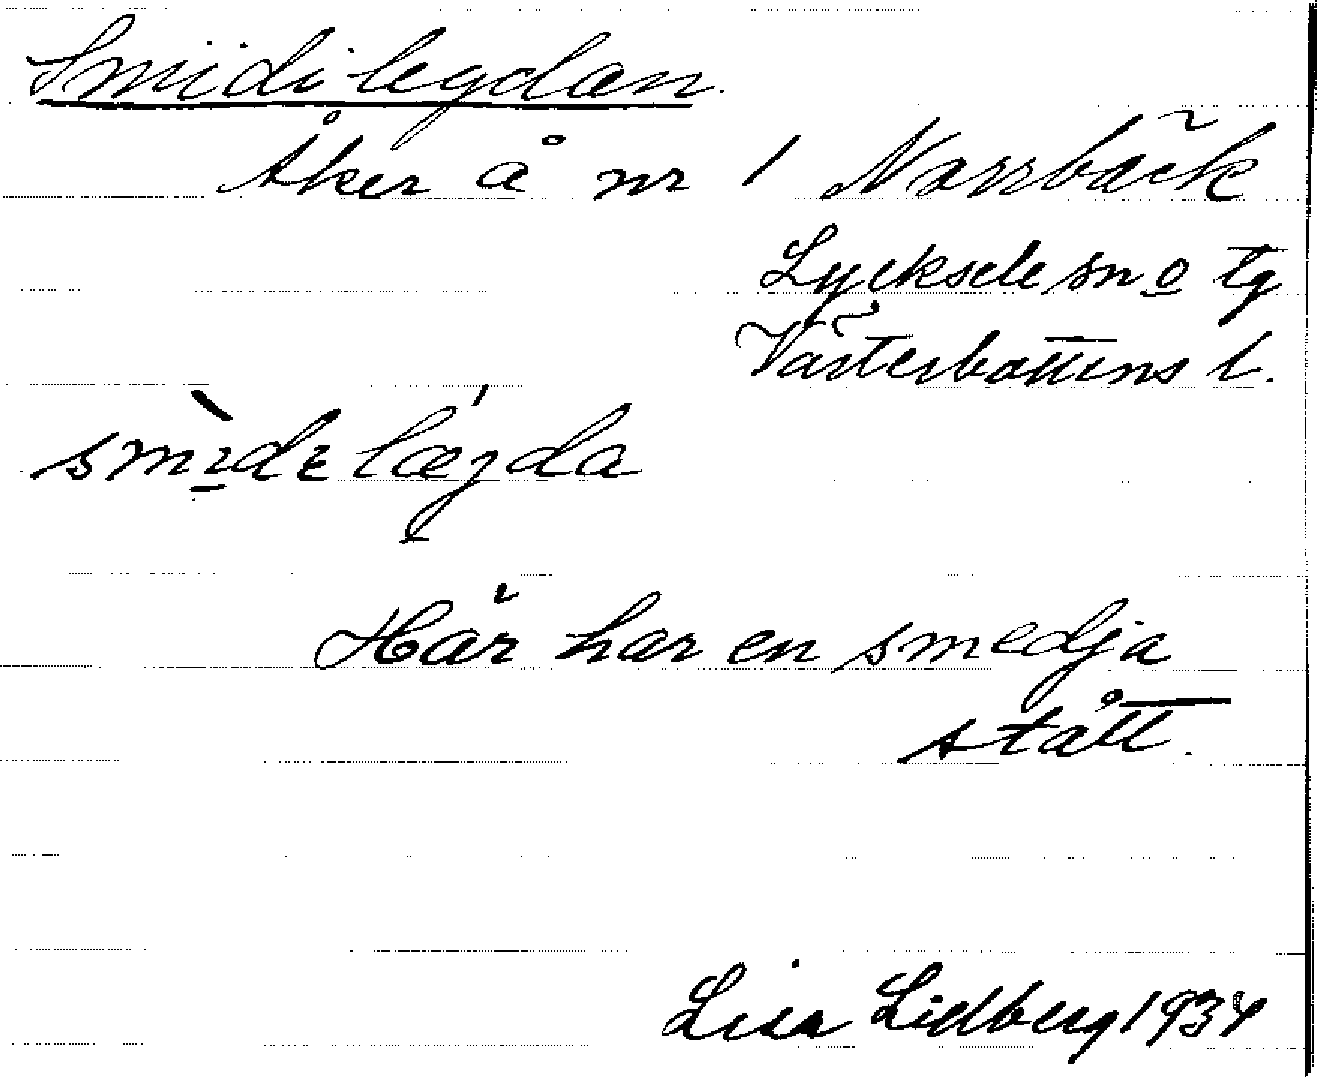 Smidilegdan.
Åker å nr 1 Norrbäck
Lycksele sn o tg
Västerbottens l.
Här har en smedja
stått.
Lisa Lidberg 1934